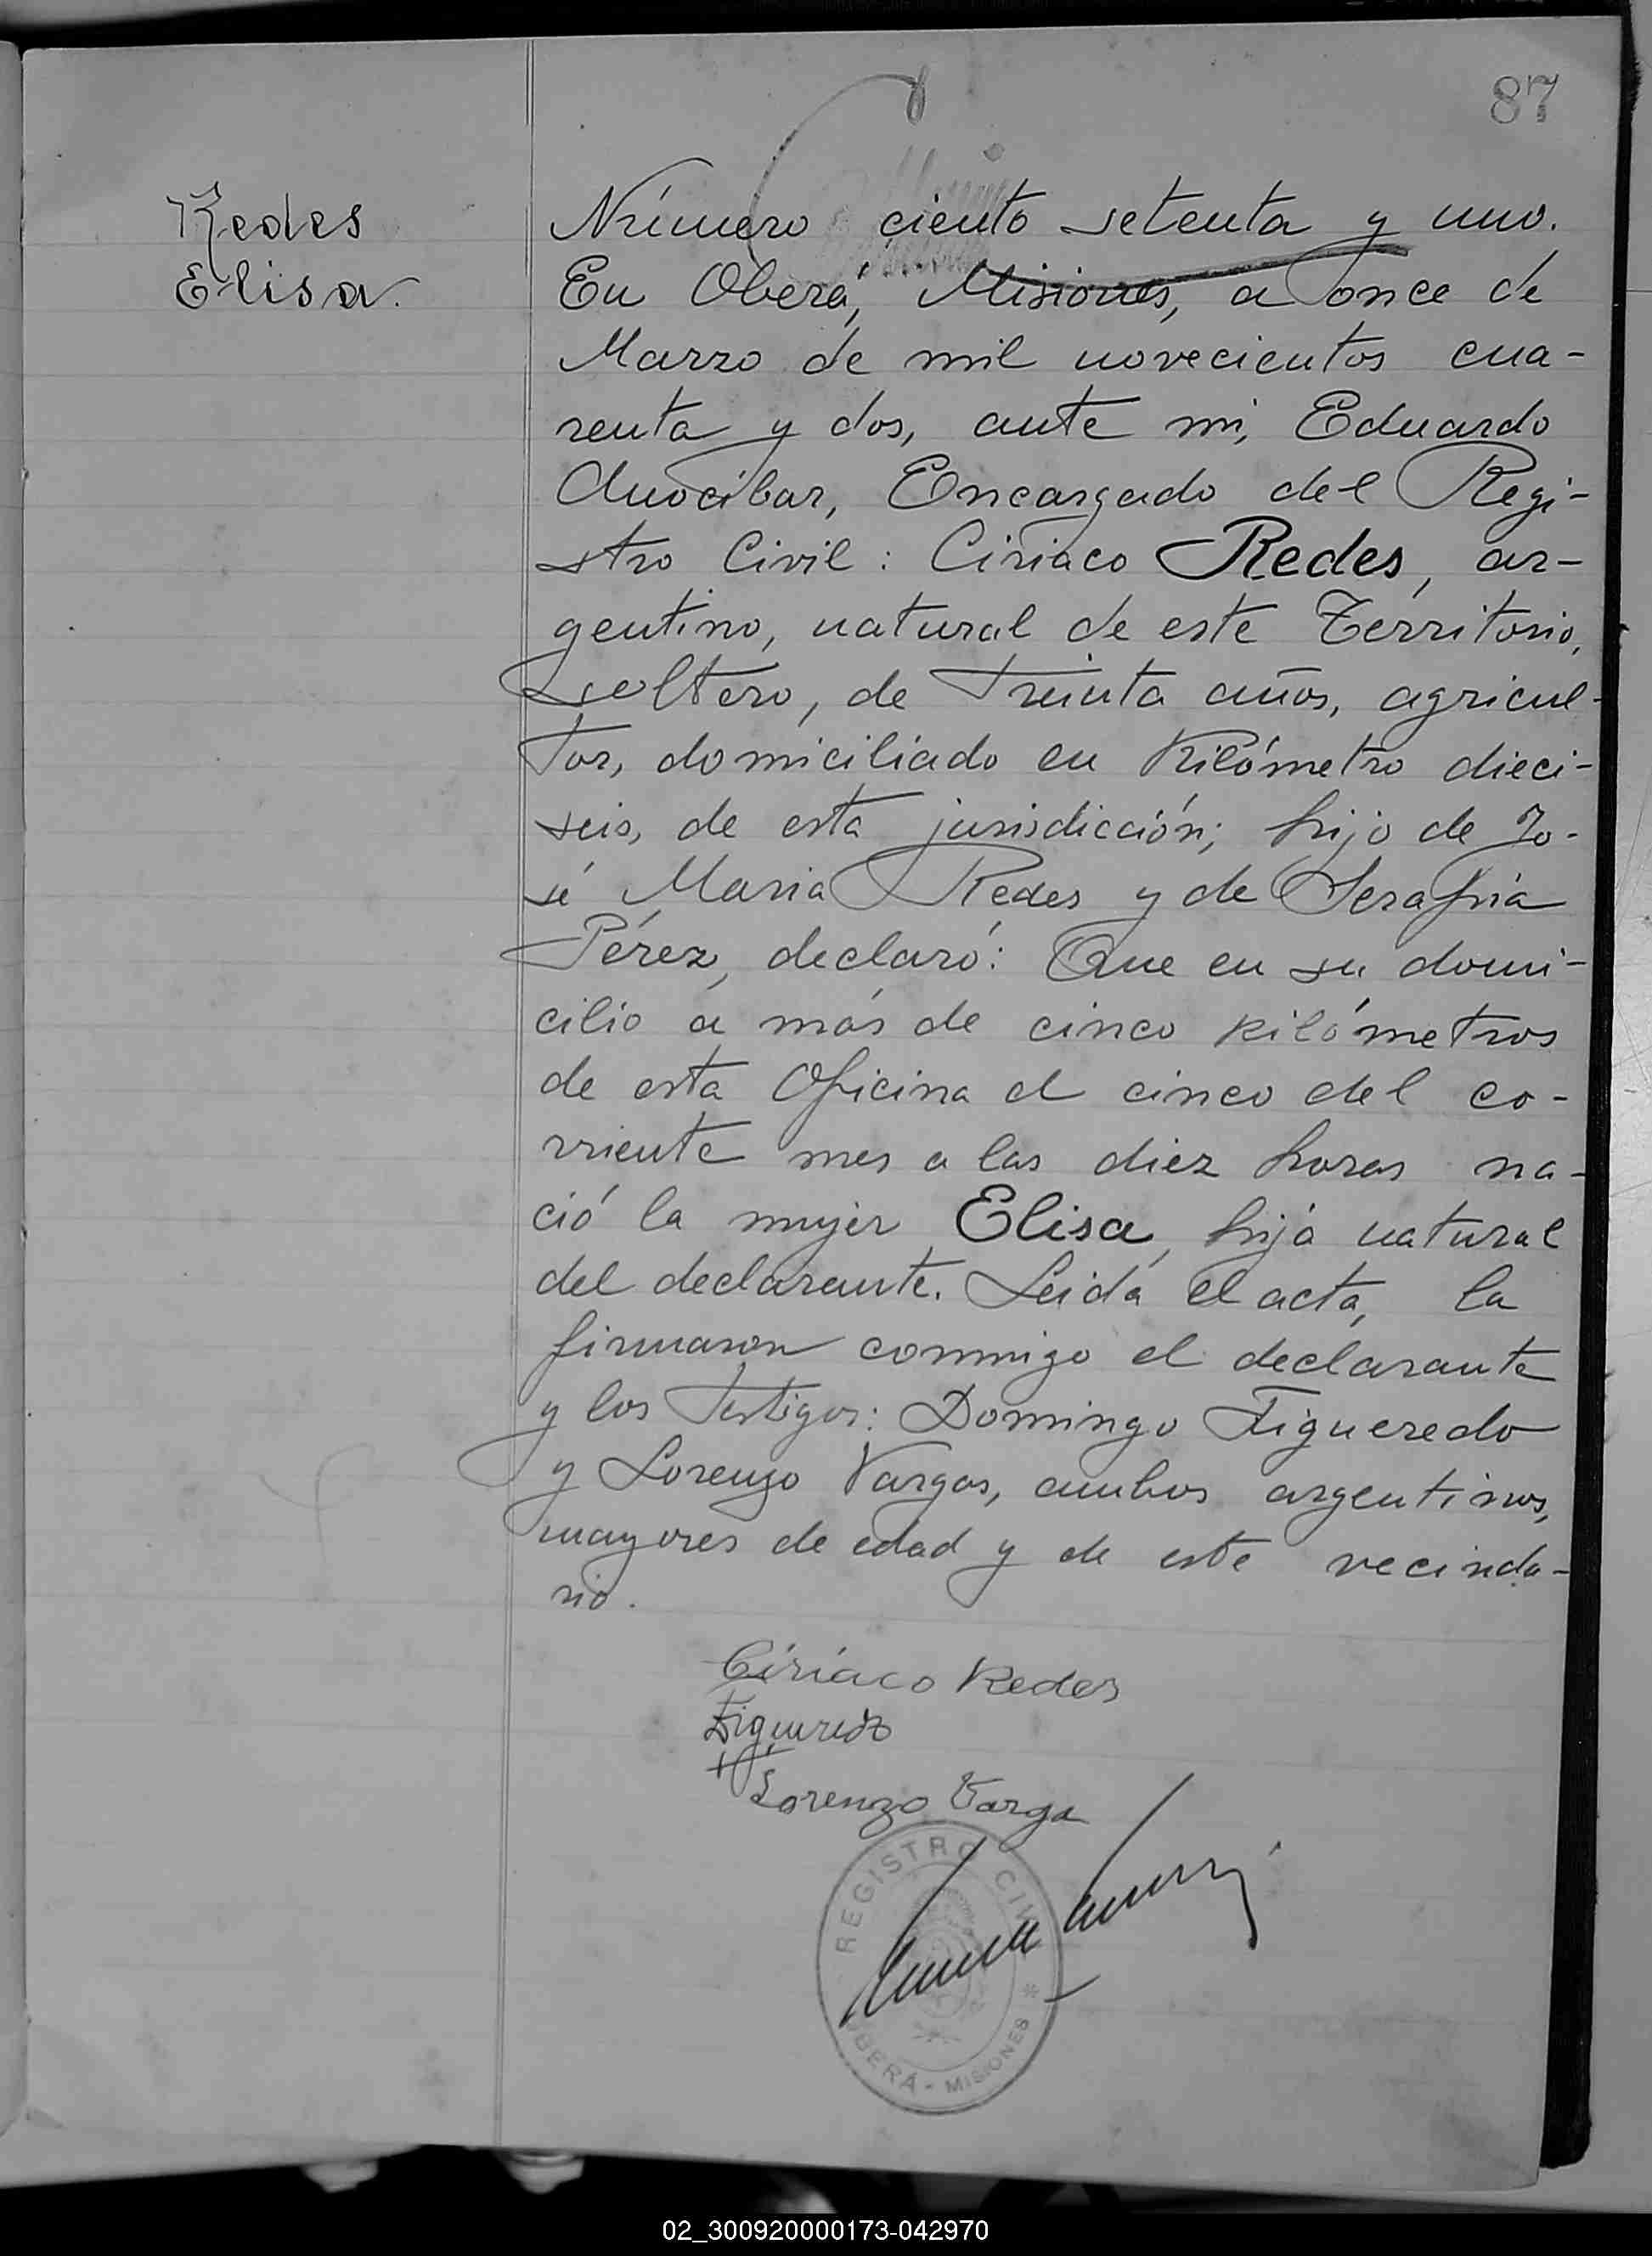 87
Redes
Elisa.
Número ciento setenta y uno.
En Oberá, Misiones, a once de
Marzo de mil novecientos cua-
renta y dos, ante mi, Eduardo
Anocibar, Encargado del Regi-
stro Civil: Ciriaco Redes, ar-
gentino, natural de este Territorio,
soltero, de treinta años, agricul-
tor, domiciliado en Kilómetro dieci-
seis, de esta jurisdicción; hijo de Jo-
sé Maria Redes y de Serafina
Pérez, declaró: Que en su domi-
cilio a más de cinco kilómetros
de esta Oficina el cinco del co-
rriente mes a las diez horas na-
ció la mujer Elisa, hija natural
del declarante. Leida el acta, la
firmaron conmigo el declarante
y los testigos: Domingo Figueredo
y Lorenzo Vargas, ambos argentinos,
mayores de edad y de este vecinda-
rio.
Ciriaco Redes
Figueredo
Lorenzo Varga
REGISTRO CIVIL
OBERÁ - MISIONES *
02_300920000173-042970